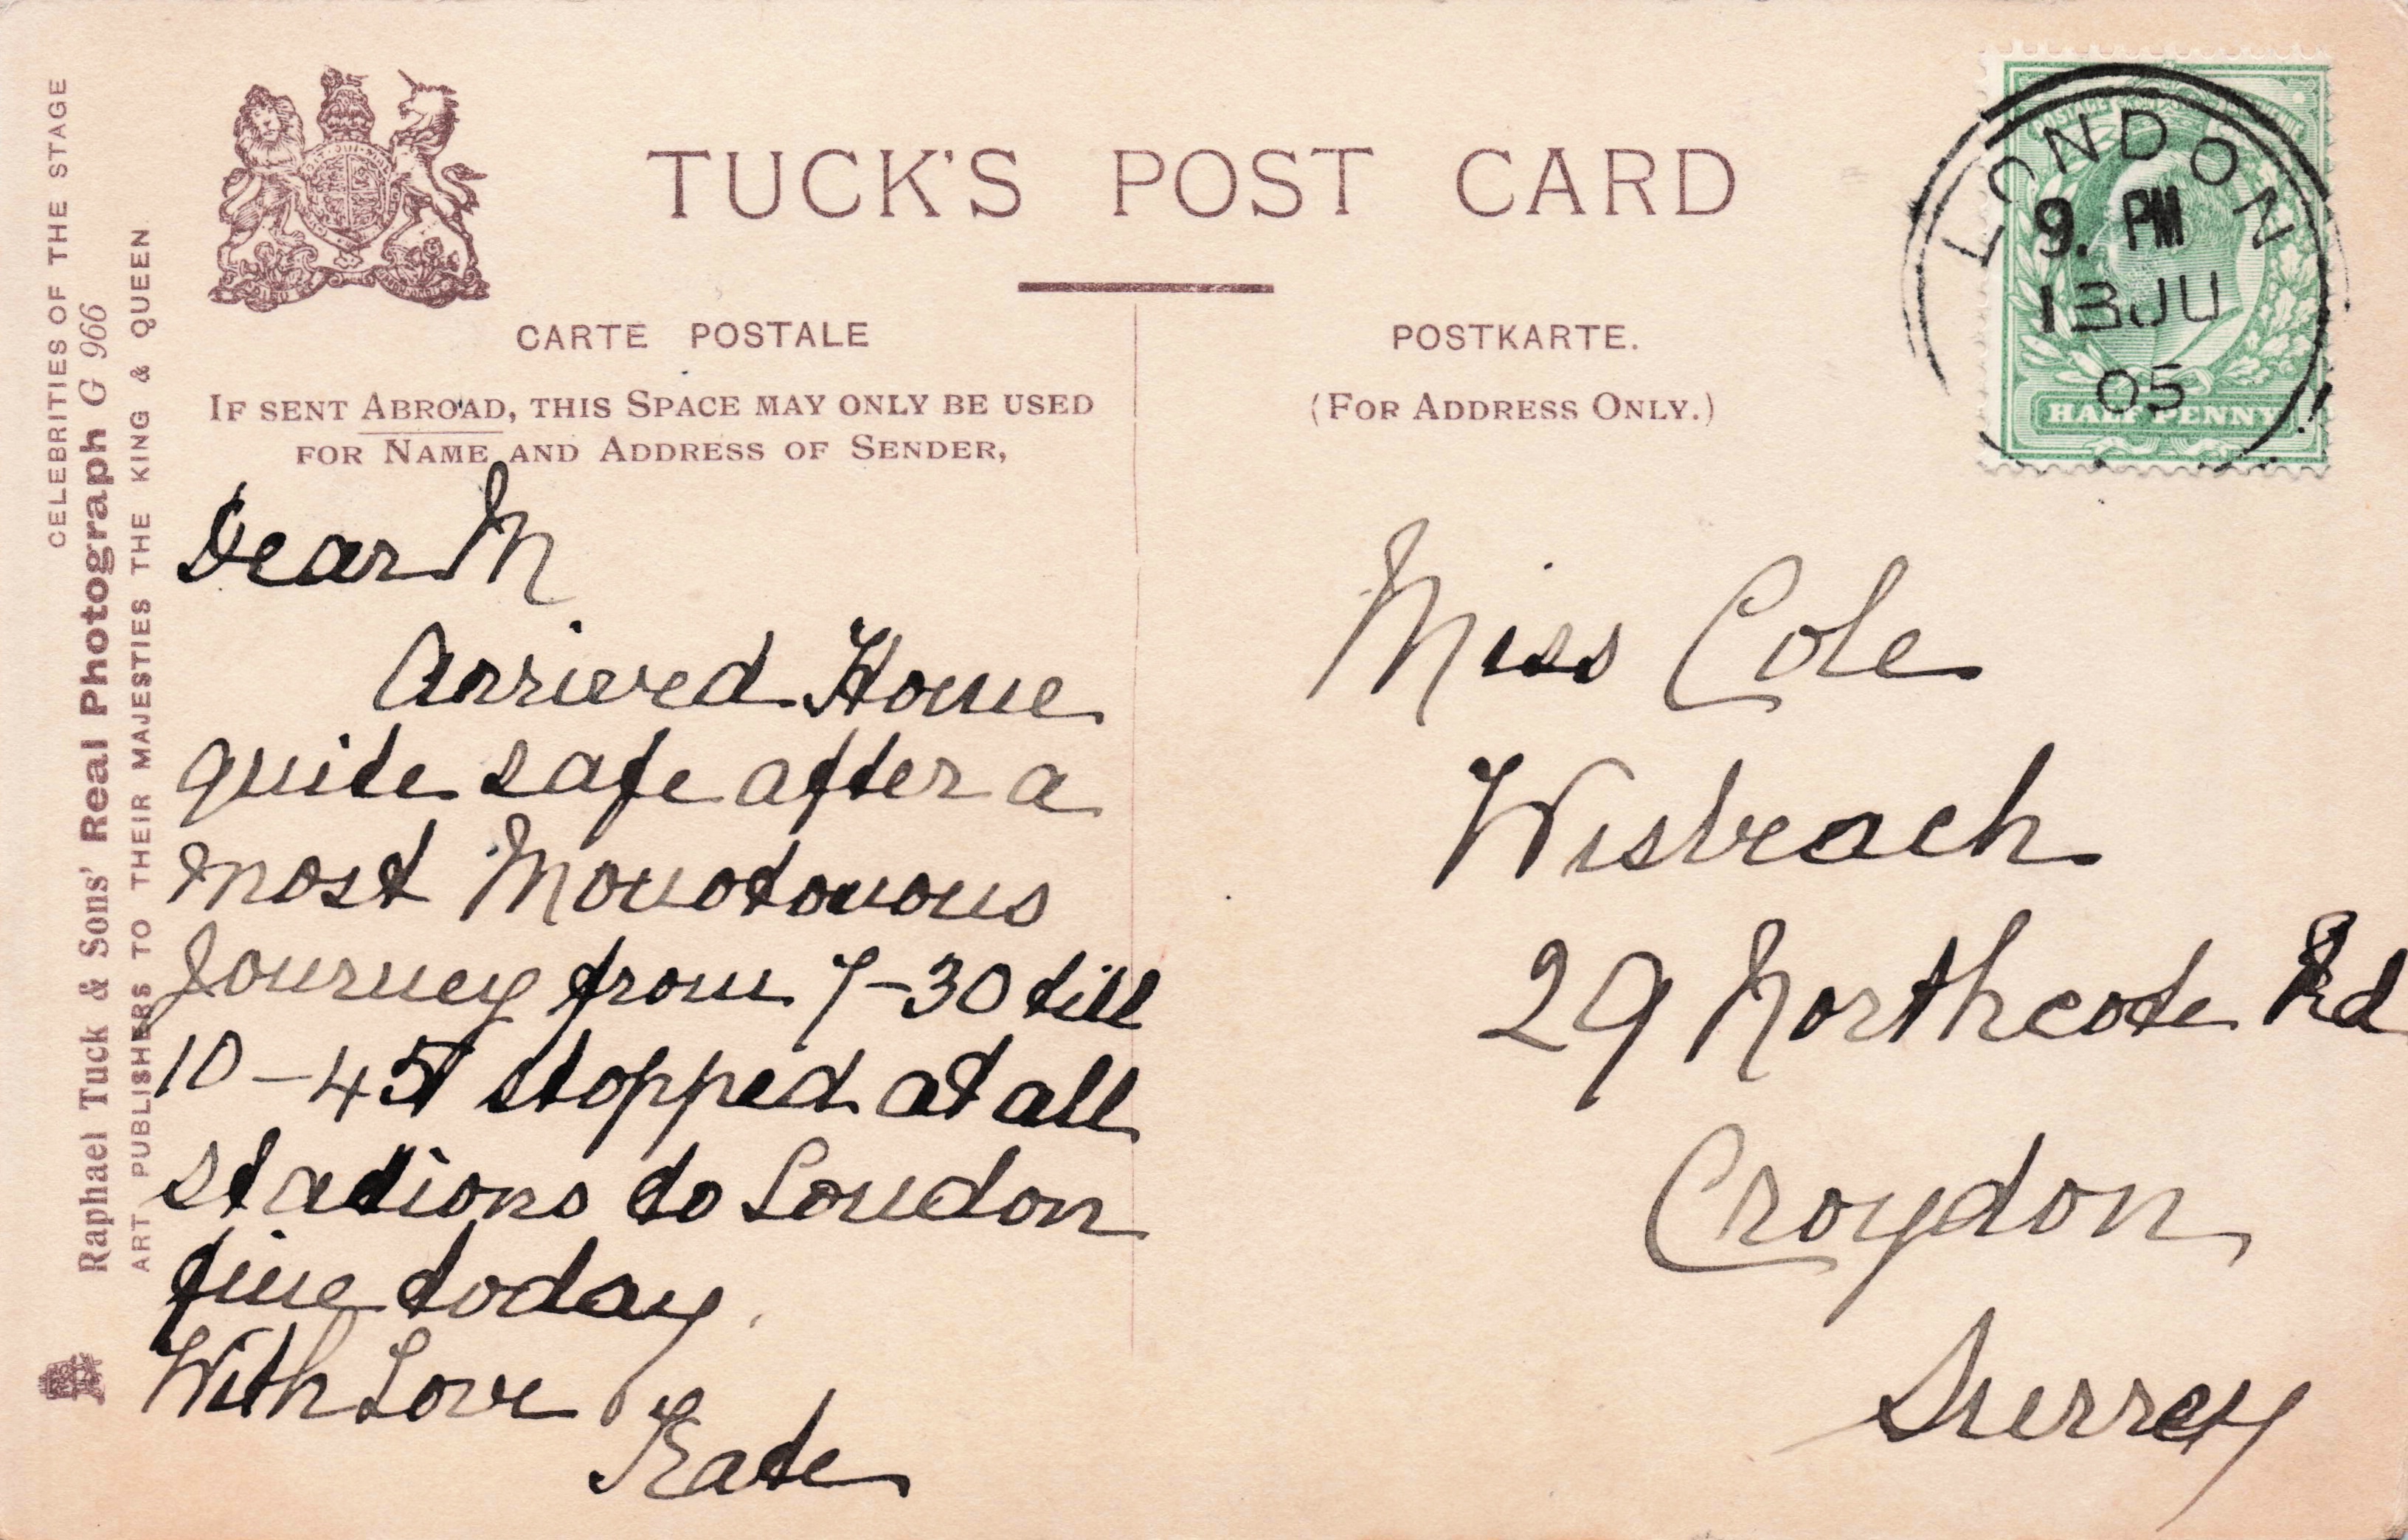 CELEBRITIES OF THE STAGE
Raphael Tuck & Sons' Real Photograph G 966
ART PUBLISHERS TO THEIR MAJESTIES THE KING & QUEEN
TUCK'S POST CARD
CARTE POSTALE
POSTKARTE.
IF SENT ABROAD, THIS SPACE MAY ONLY BE USED
FOR NAME AND ADDRESS OF SENDER,
(FOR ADDRESS ONLY.)
LONDON
9. PM
13 JU
05
HALFPENNY
Dear M
Arrived Home
quite safe after a
most Monotonous
Journey from 7-30 till
10-45 stopped at all
stations to London
fine today.
With Love
Kate
Miss Cole
Wisbeach
29 Northcote Rd
Croydon
Surrey